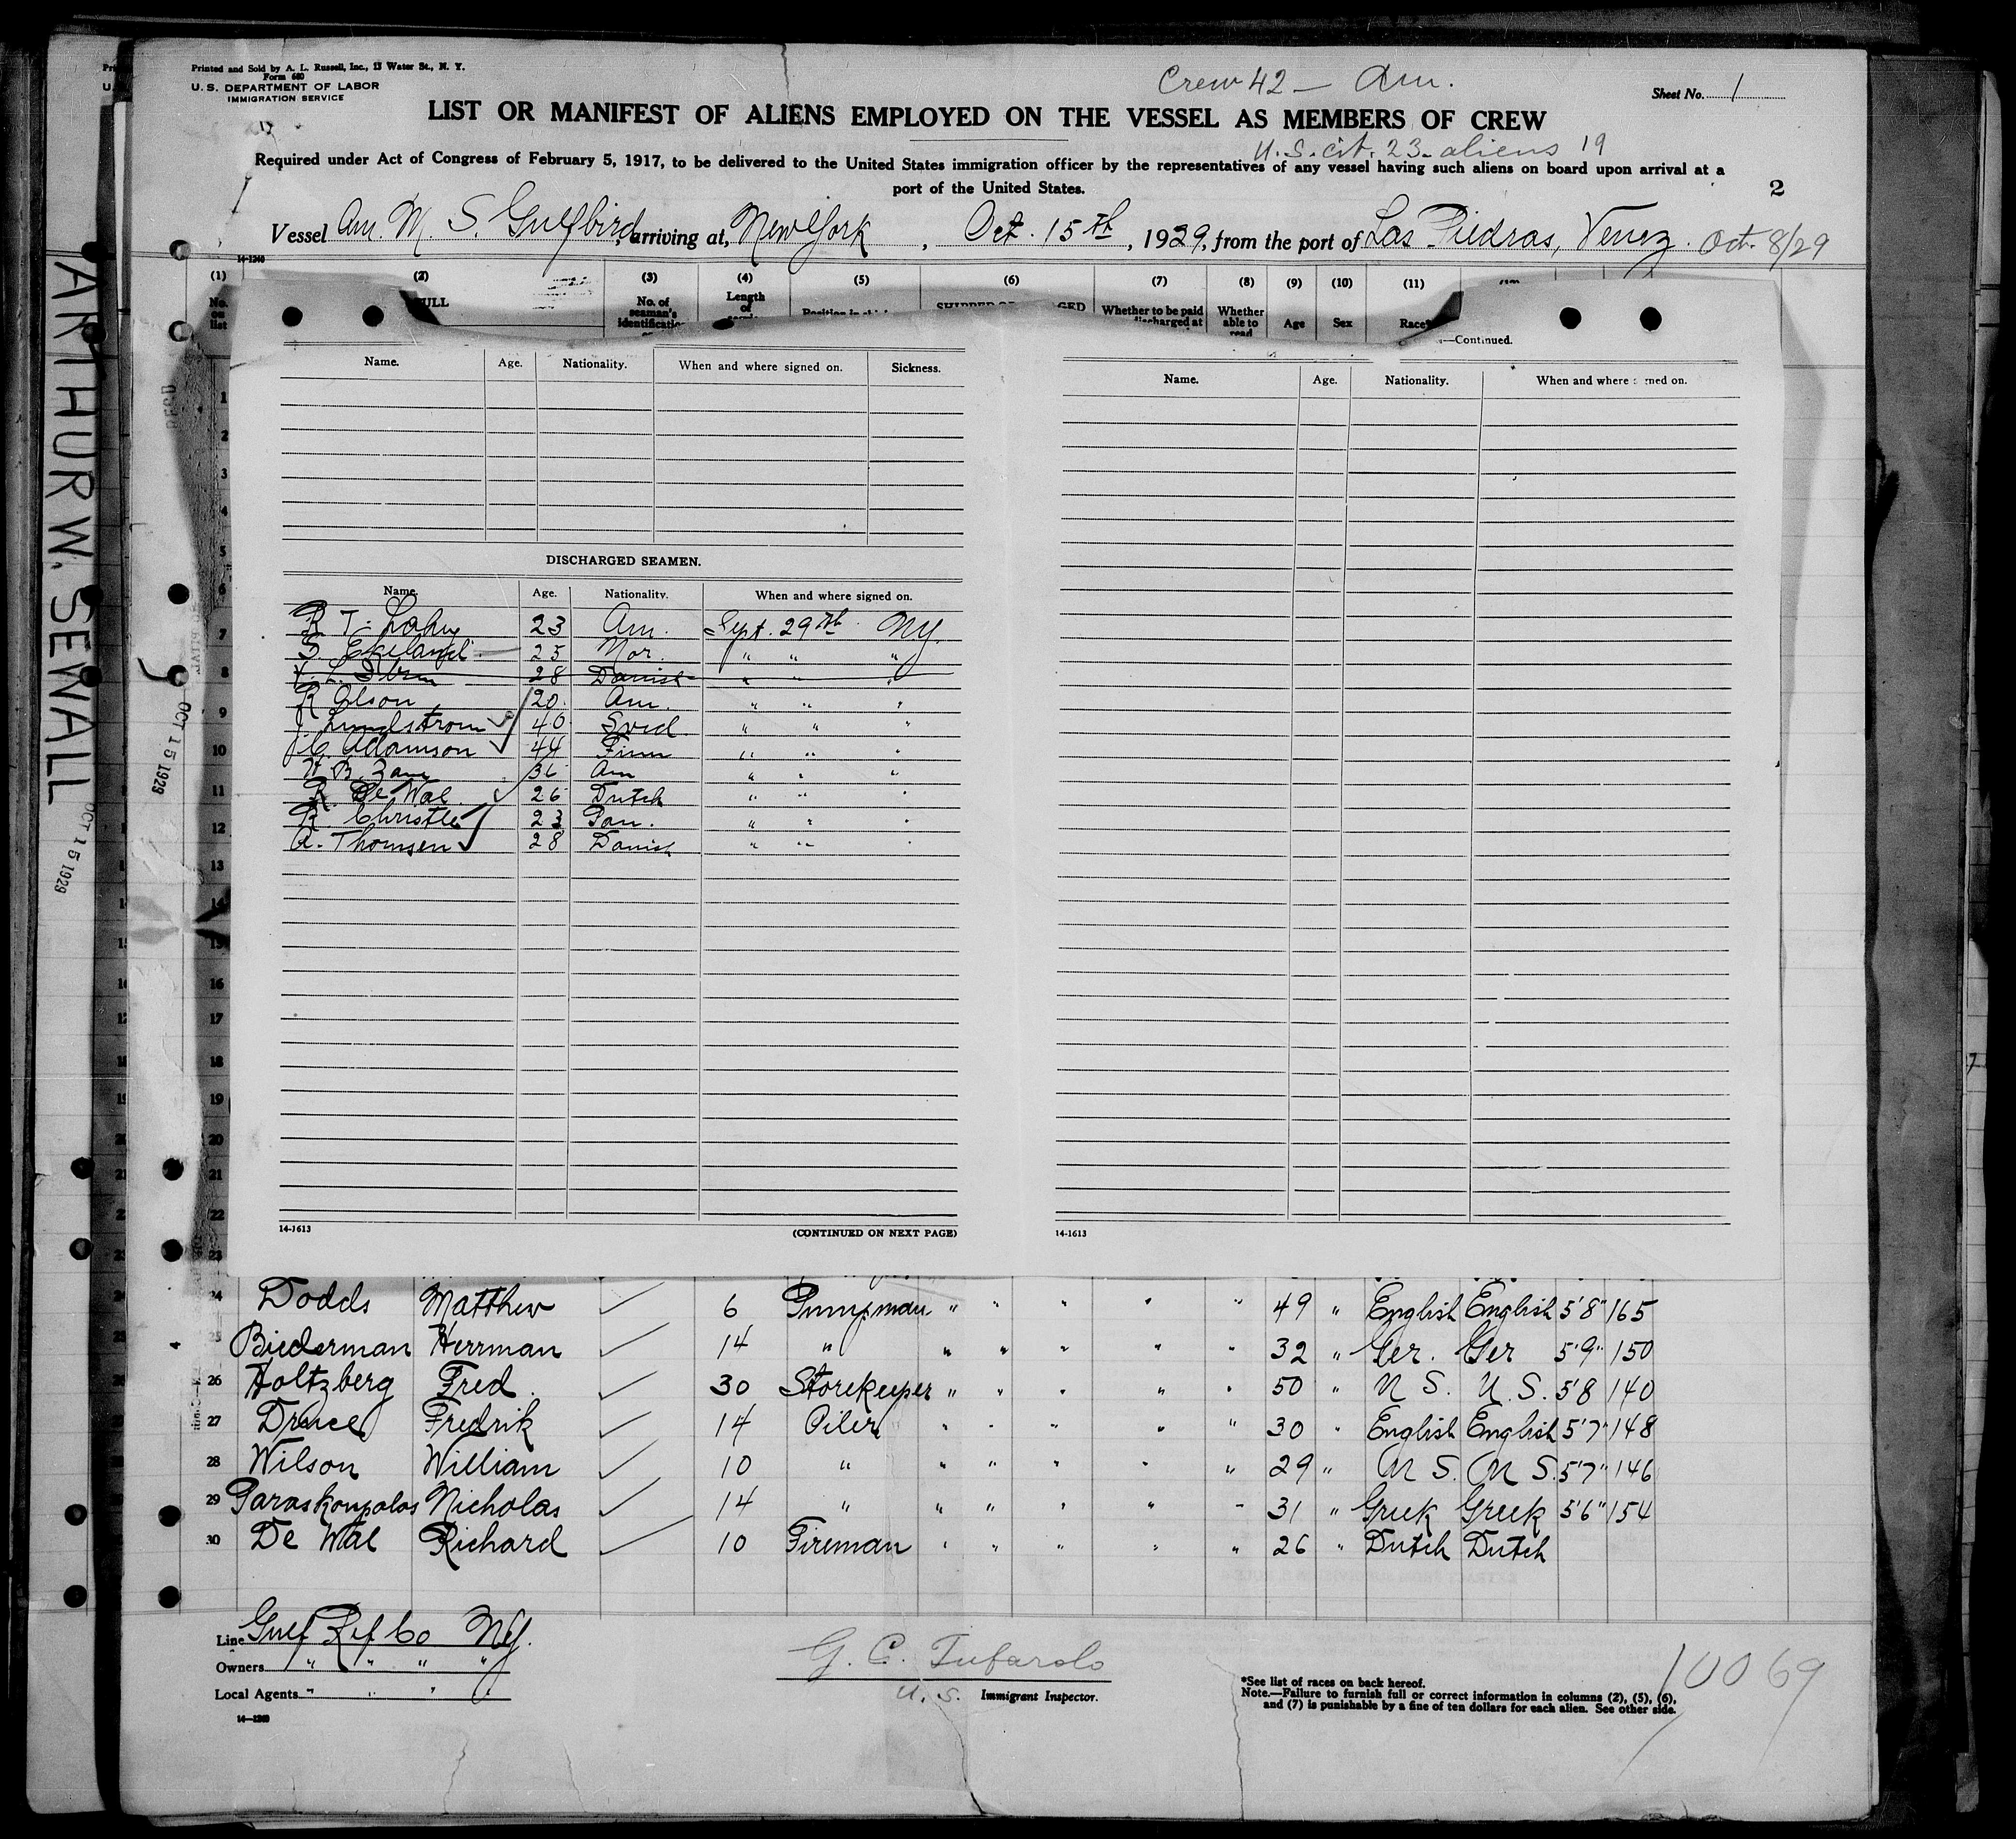 Printed and Sold by A. L. Russell, Inc., 13 Water St., N. Y.
Form 680
U. S. DEPARTMENT OF LABOR
IMMIGRATION SERVICE
Crew 42 – Am.
Sheet No. 1
LIST OR MANIFEST OF ALIENS EMPLOYED ON THE VESSEL AS MEMBERS OF CREW
U. S. cit. 23 - aliens 19
Required under Act of Congress of February 5, 1917, to be delivered to the United States immigration officer by the representatives of any vessel having such aliens on board upon arrival at a
port of the United States.
2
Vessel Am. M. S. Gulfbird, arriving at, New York, Oct. 15th, 1929, from the port of Las Piedras, Venez. Oct. 8/29
14-1240
(1) (2) (3) (4) (5) (6) (7) (8) (9) (10) (11)
No. on list
No. of seaman's identification
Length of
Whether to be paid discharged at
Whether able to read
Age Sex Race*
—Continued.
Name. Age. Nationality. When and where signed on. Sickness.
Name. Age. Nationality. When and where signed on.
DISCHARGED SEAMEN.
Name. Age. Nationality. When and where signed on.
R. T. 23 Am. Sept. 29th NY.
S. Ekeland 25 Nor. " " "
28 Danish " " "
R Olson 20 Am. " " "
J. Lundstrom 40 Swed. " " "
J C. Adamson 44 Finn " " "
36 Am " " "
R. De Wal 26 Dutch " " "
R Christle 23 Pan. " " "
A. Thomsen 28 Danish " " "
14-1613
(CONTINUED ON NEXT PAGE)
14-1613
ARTHUR W. SEWALL
OCT 15 1929
OCT 15 1929
1
2
3
4
5
6
7
8
9
10
11
12
13
14
15
16
17
18
19
20
21
22
23
24 Dodds Matthew 6 Pumpman " " " " " 49 " English English 5'8" 165
25 Biederman Herrman 14 " " " " " " 32 " Ger. Ger 5'9" 150
26 Holtzberg Fred. 30 Storekeeper " " " " " 50 " U. S. U. S. 5'8 140
27 Druce Fredrik 14 Oiler " " " " " 30 " English English 5'7" 148
28 Wilson William 10 " " " " " " 29 " U S. U S. 5'7" 146
29 Paraskoupolos Nicholas 14 " " " " " " 31 " Greek Greek 5'6" 154
30 De Wal Richard 10 Fireman " " " " " 26 " Dutch Dutch
Line Gulf Ref Co NY.
Owners " " " "
Local Agents " " " "
14-1240
G. C. Tufarolo
U. S. Immigrant Inspector.
*See list of races on back hereof.
Note.—Failure to furnish full or correct information in columns (2), (5), (6),
and (7) is punishable by a fine of ten dollars for each alien. See other side.
10069